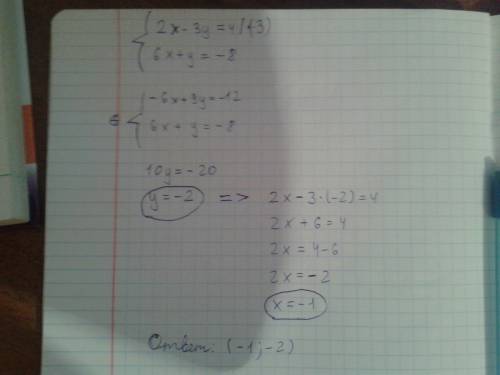 2x-3y=4/(-3)
6x+y=-8
-6x+9y=-12
6x+y=-8
10y=-20
y=-2 => 2x-3·(-2)=4
2x+6=4
2x=4-6
2x=-2
x=-1
Ответ: (-1;-2)